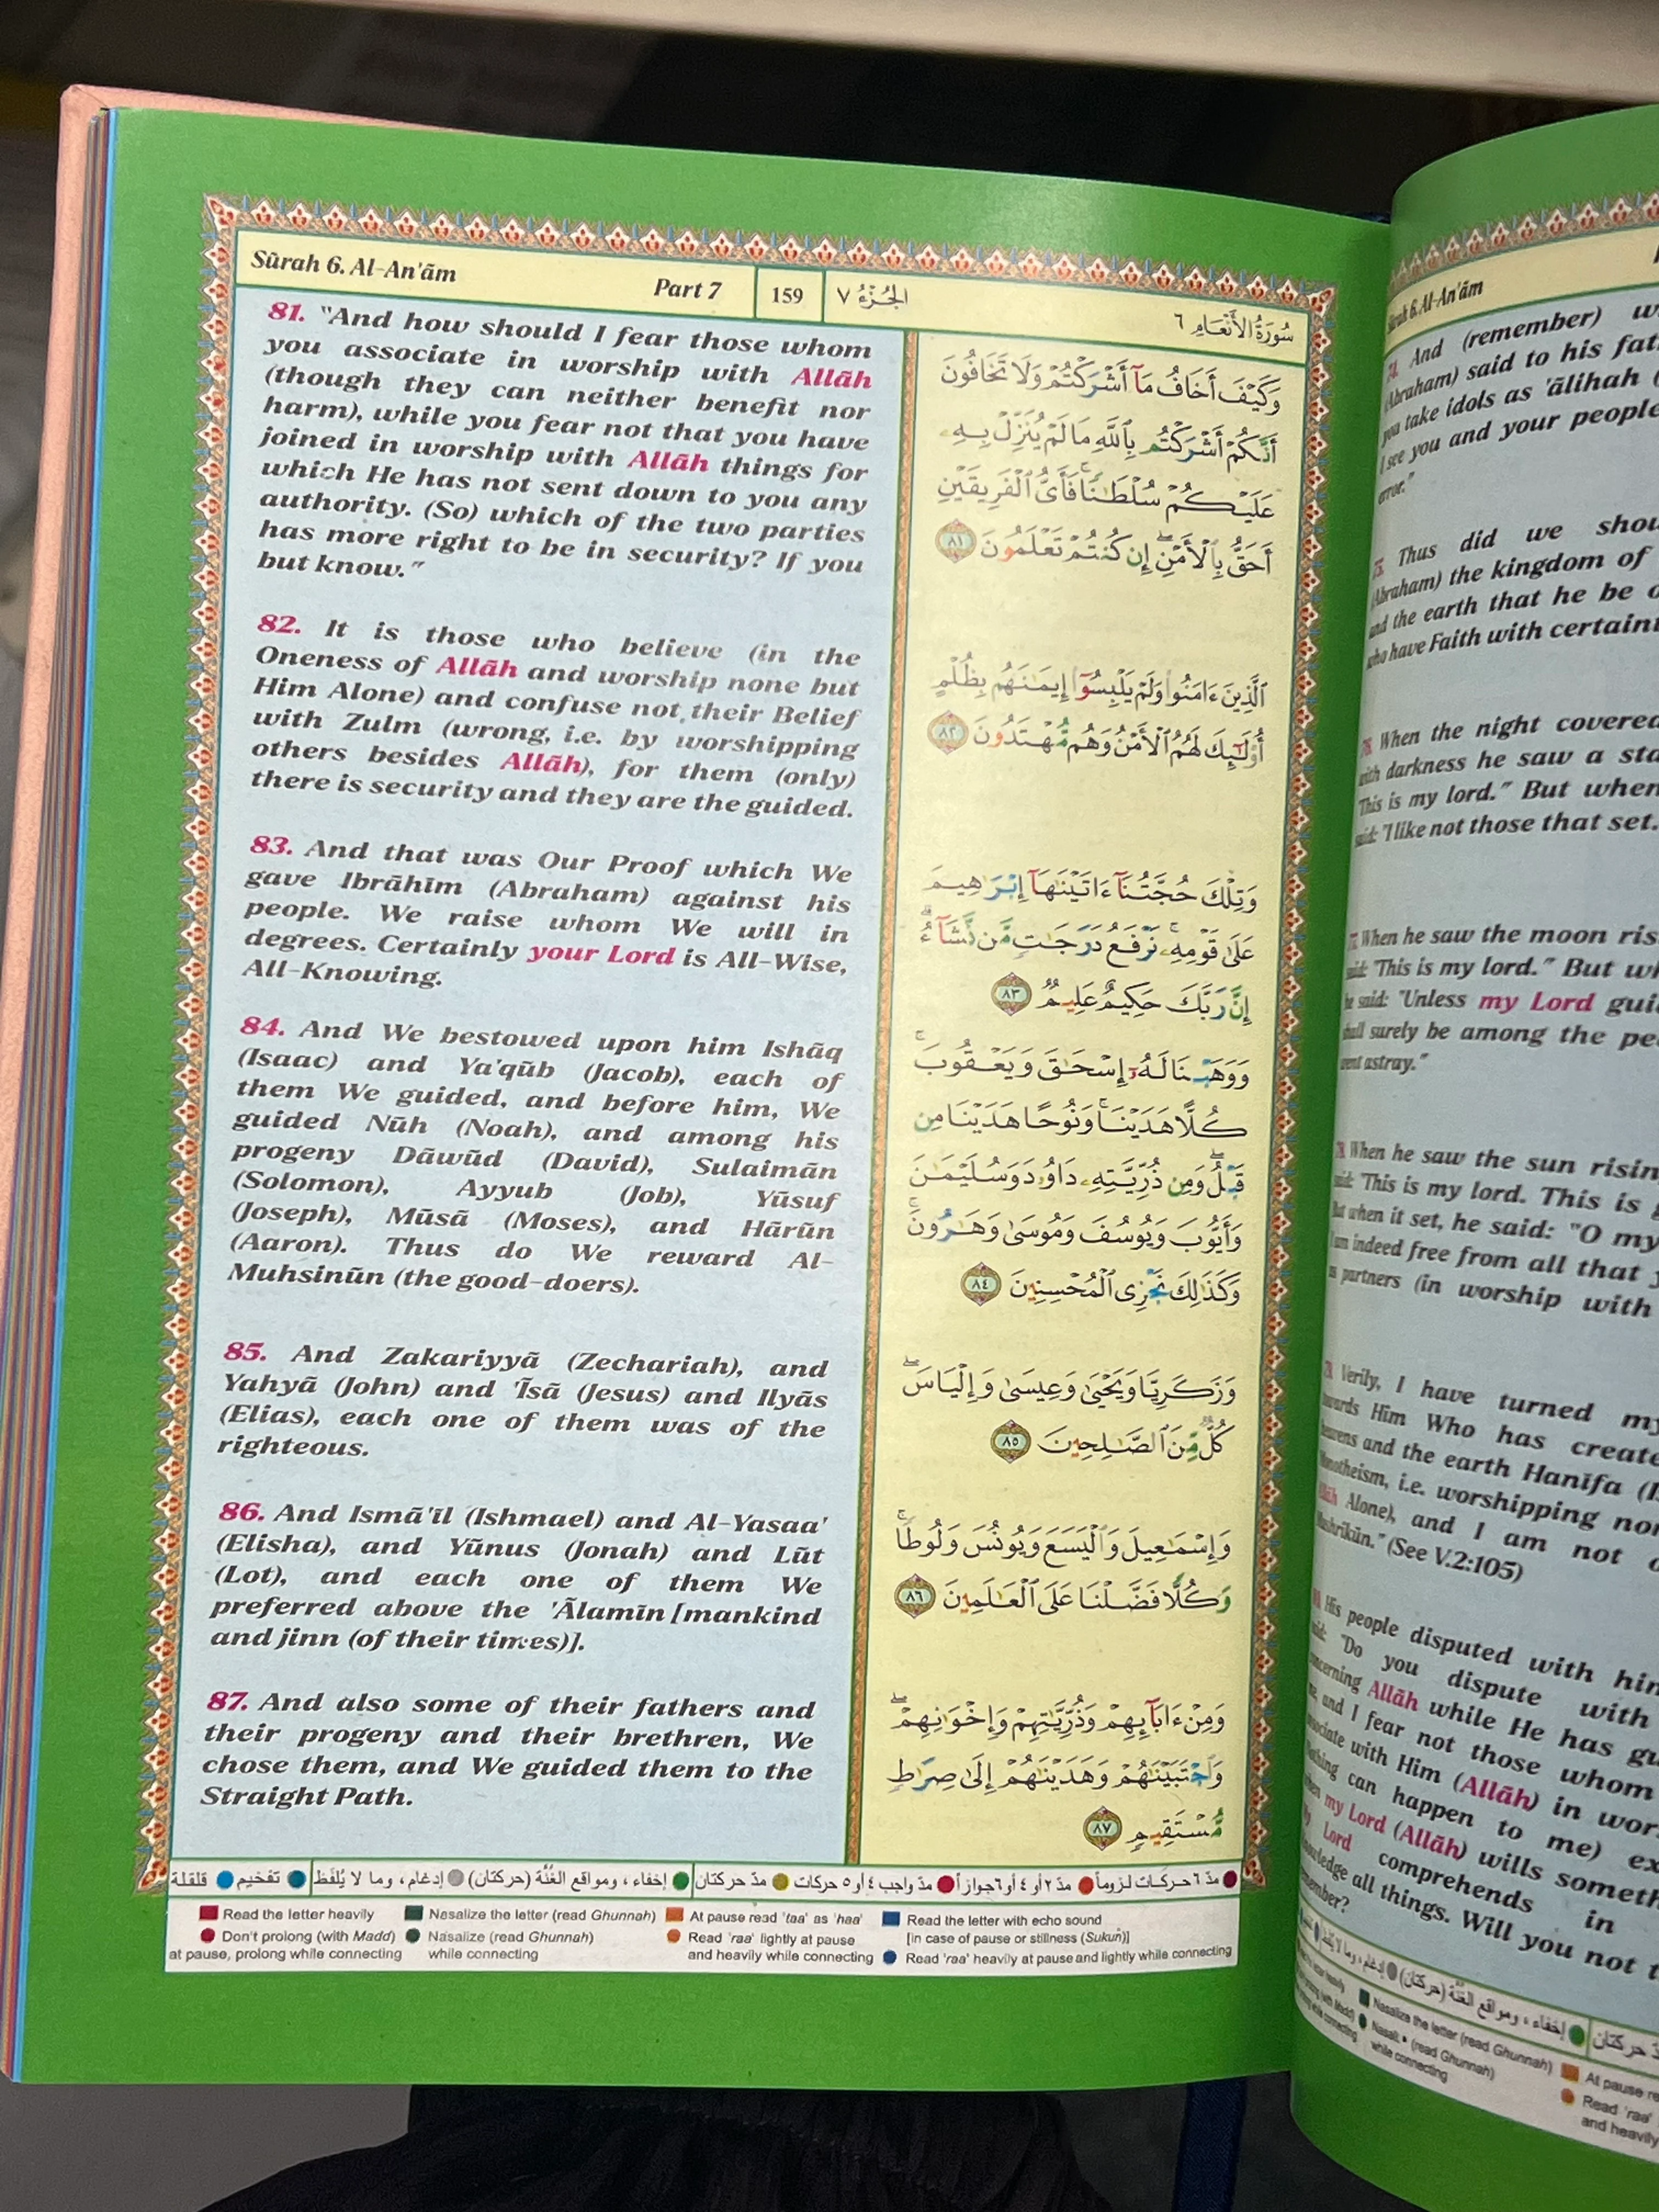 Sūrah 6. Al-An'ām
Part 7
159
الجُزءُ ٧
سُورَةُ الأَنْعَام ٦
81. "And how should I fear those whom
you associate in worship with Allāh
(though they can neither benefit nor
harm), while you fear not that you have
joined in worship with Allāh things for
which He has not sent down to you any
authority. (So) which of the two parties
has more right to be in security? If you
but know."
82. It is those who believe (in the
Oneness of Allāh and worship none but
Him Alone) and confuse not their Belief
with Zulm (wrong, i.e. by worshipping
others besides Allāh), for them (only)
there is security and they are the guided.
83. And that was Our Proof which We
gave Ibrāhīm (Abraham) against his
people. We raise whom We will in
degrees. Certainly your Lord is All-Wise,
All-Knowing.
84. And We bestowed upon him Ishāq
(Isaac) and Ya'qūb (Jacob), each of
them We guided, and before him, We
guided Nūh (Noah), and among his
progeny Dāwūd (David), Sulaimān
(Solomon), Ayyub (Job), Yūsuf
(Joseph), Mūsā (Moses), and Hārūn
(Aaron). Thus do We reward Al-
Muhsinūn (the good-doers).
85. And Zakariyyā (Zechariah), and
Yahyā (John) and 'Īsā (Jesus) and Ilyās
(Elias), each one of them was of the
righteous.
86. And Ismā'īl (Ishmael) and Al-Yasaa'
(Elisha), and Yūnus (Jonah) and Lūt
(Lot), and each one of them We
preferred above the 'Ālamīn [mankind
and jinn (of their times)].
87. And also some of their fathers and
their progeny and their brethren, We
chose them, and We guided them to the
Straight Path.
وَكَيْفَ أَخَافُ مَآ أَشْرَكْتُمْ وَلَا تَخَافُونَ
أَنَّكُمْ أَشْرَكْتُم بِٱللَّهِ مَا لَمْ يُنَزِّلْ بِهِۦ
عَلَيْكُمْ سُلْطَٰنًا ۚ فَأَىُّ ٱلْفَرِيقَيْنِ
أَحَقُّ بِٱلْأَمْنِ ۖ إِن كُنتُمْ تَعْلَمُونَ ٨١
ٱلَّذِينَ ءَامَنُوا۟ وَلَمْ يَلْبِسُوٓا۟ إِيمَٰنَهُم بِظُلْمٍ
أُو۟لَٰٓئِكَ لَهُمُ ٱلْأَمْنُ وَهُم مُّهْتَدُونَ ٨٢
وَتِلْكَ حُجَّتُنَآ ءَاتَيْنَٰهَآ إِبْرَٰهِيمَ
عَلَىٰ قَوْمِهِۦ ۚ نَرْفَعُ دَرَجَٰتٍ مَّن نَّشَآءُ ۗ
إِنَّ رَبَّكَ حَكِيمٌ عَلِيمٌ ٨٣
وَوَهَبْنَا لَهُۥٓ إِسْحَٰقَ وَيَعْقُوبَ ۚ
كُلًّا هَدَيْنَا ۚ وَنُوحًا هَدَيْنَا مِن
قَبْلُ ۖ وَمِن ذُرِّيَّتِهِۦ دَاوُۥدَ وَسُلَيْمَٰنَ
وَأَيُّوبَ وَيُوسُفَ وَمُوسَىٰ وَهَٰرُونَ ۚ
وَكَذَٰلِكَ نَجْزِى ٱلْمُحْسِنِينَ ٨٤
وَزَكَرِيَّا وَيَحْيَىٰ وَعِيسَىٰ وَإِلْيَاسَ ۖ
كُلٌّ مِّنَ ٱلصَّٰلِحِينَ ٨٥
وَإِسْمَٰعِيلَ وَٱلْيَسَعَ وَيُونُسَ وَلُوطًا ۚ
وَكُلًّا فَضَّلْنَا عَلَى ٱلْعَٰلَمِينَ ٨٦
وَمِنْ ءَابَآئِهِمْ وَذُرِّيَّٰتِهِمْ وَإِخْوَٰنِهِمْ ۖ
وَٱجْتَبَيْنَٰهُمْ وَهَدَيْنَٰهُمْ إِلَىٰ صِرَٰطٍ
مُّسْتَقِيمٍ ٨٧
مدّ ٦ حركات لزوماً مدّ ٢ أو ٤ أو ٦ جوازاً مدّ واجب ٤ أو ٥ حركات مدّ حركتان إخفاء، ومواقع الغُنَّة (حركتان) إدغام، وما لا يُلفَظ تفخيم قلقلة
Read the letter heavily
Don't prolong (with Madd)
at pause, prolong while connecting
Nasalize the letter (read Ghunnah)
Nasalize (read Ghunnah)
while connecting
At pause read 'taa' as 'haa'
Read 'raa' lightly at pause
and heavily while connecting
Read the letter with echo sound
[in case of pause or stillness (Sukun)]
Read 'raa' heavily at pause and lightly while connecting
Sūrah 6. Al-An'ām
74. And (remember)
(Abraham) said to his
you take idols as 'ālihah
I see you and your people
error."
75. Thus did we
(Abraham) the kingdom of
and the earth that he be
who have Faith with
When the night covered
with darkness he saw a
"This is my lord." But when
said: "I like not those that set.
When he saw the moon
said: "This is my lord." But
he said: "Unless my Lord
shall surely be among the
went astray."
When he saw the sun
said: "This is my lord. This is
But when it set, he said: "O my
I am indeed free from all that
as partners (in worship with
Verily, I have turned
towards Him Who has
heavens and the earth Hanīfa
Monotheism, i.e. worshipping
Allāh Alone), and I am not
Mushrikūn." (See V.2:105)
His people disputed with
said: "Do you dispute with
concerning Allāh while He has
me, and I fear not those whom
associate with Him (Allāh) in
Nothing can happen to me)
when my Lord (Allāh) wills
My Lord comprehends in
knowledge all things. Will you not
remember?
إخفاء، ومواقع الغُنَّة (حركتان)
Nasalize the letter (read Ghunnah)
(read Ghunnah)
while connecting
At pause
Read 'raa'
and heavily